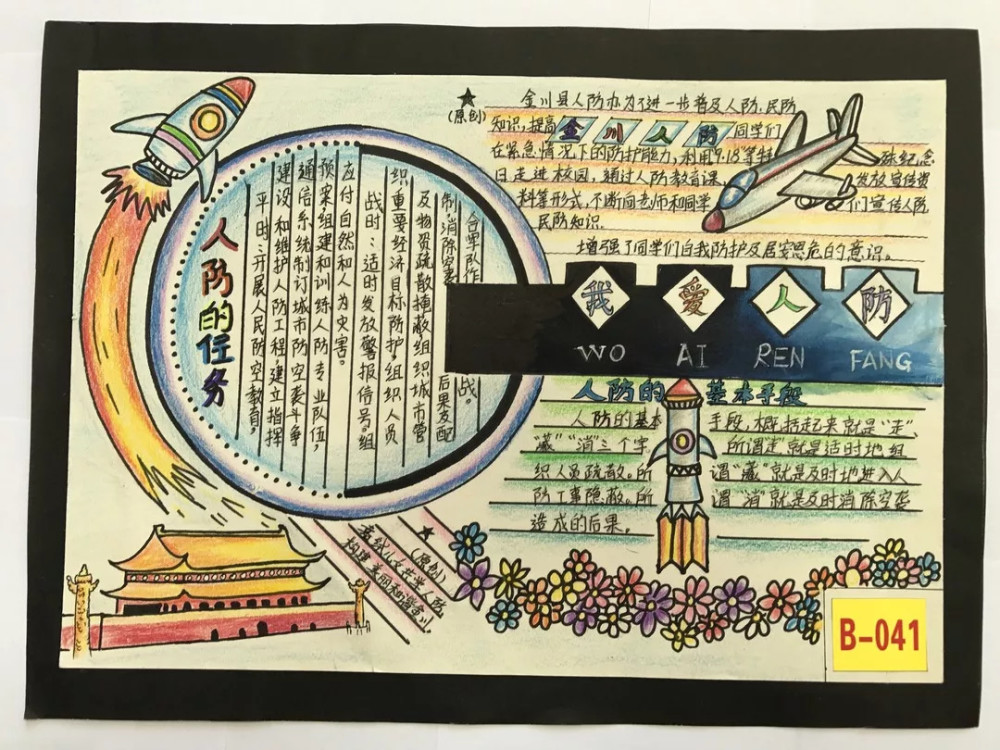 ★
(原创)
金川县人防办为了进一步普及人防、民防
知识,提高金川人防同学们
在紧急情况下的防护能力,利用9.18等特殊纪念
日走进校园,通过人防教育课,发放宣传资
料等形式,不断向老师和同学们宣传人防
民防知识。
增强了同学们自我防护及居安思危的意识。
人防的任务
平时:开展人民防空教育,
建设和维护人防工程,建立指挥
通信系统制订城市防空袭斗争
预案组建和训练人防专业队伍,
应付自然和人为灾害。
战时:适时发放警报信号,组
织重要经济目标防护,组织人员
及物资疏散掩蔽组织城市管
制消除空袭后果支配
合军队作战。
我爱人防
WO AI REN FANG
人防的基本手段
人防的基本手段,概括起来就是“走”、
“藏”“消”三个字。所谓“走”就是适时地组
织人员疏散。所谓“藏”就是及时地进入人
防工事隐蔽。所谓“消”就是及时消除空袭
造成的后果。
★
(原创)
构建美丽和谐金川。
B-041